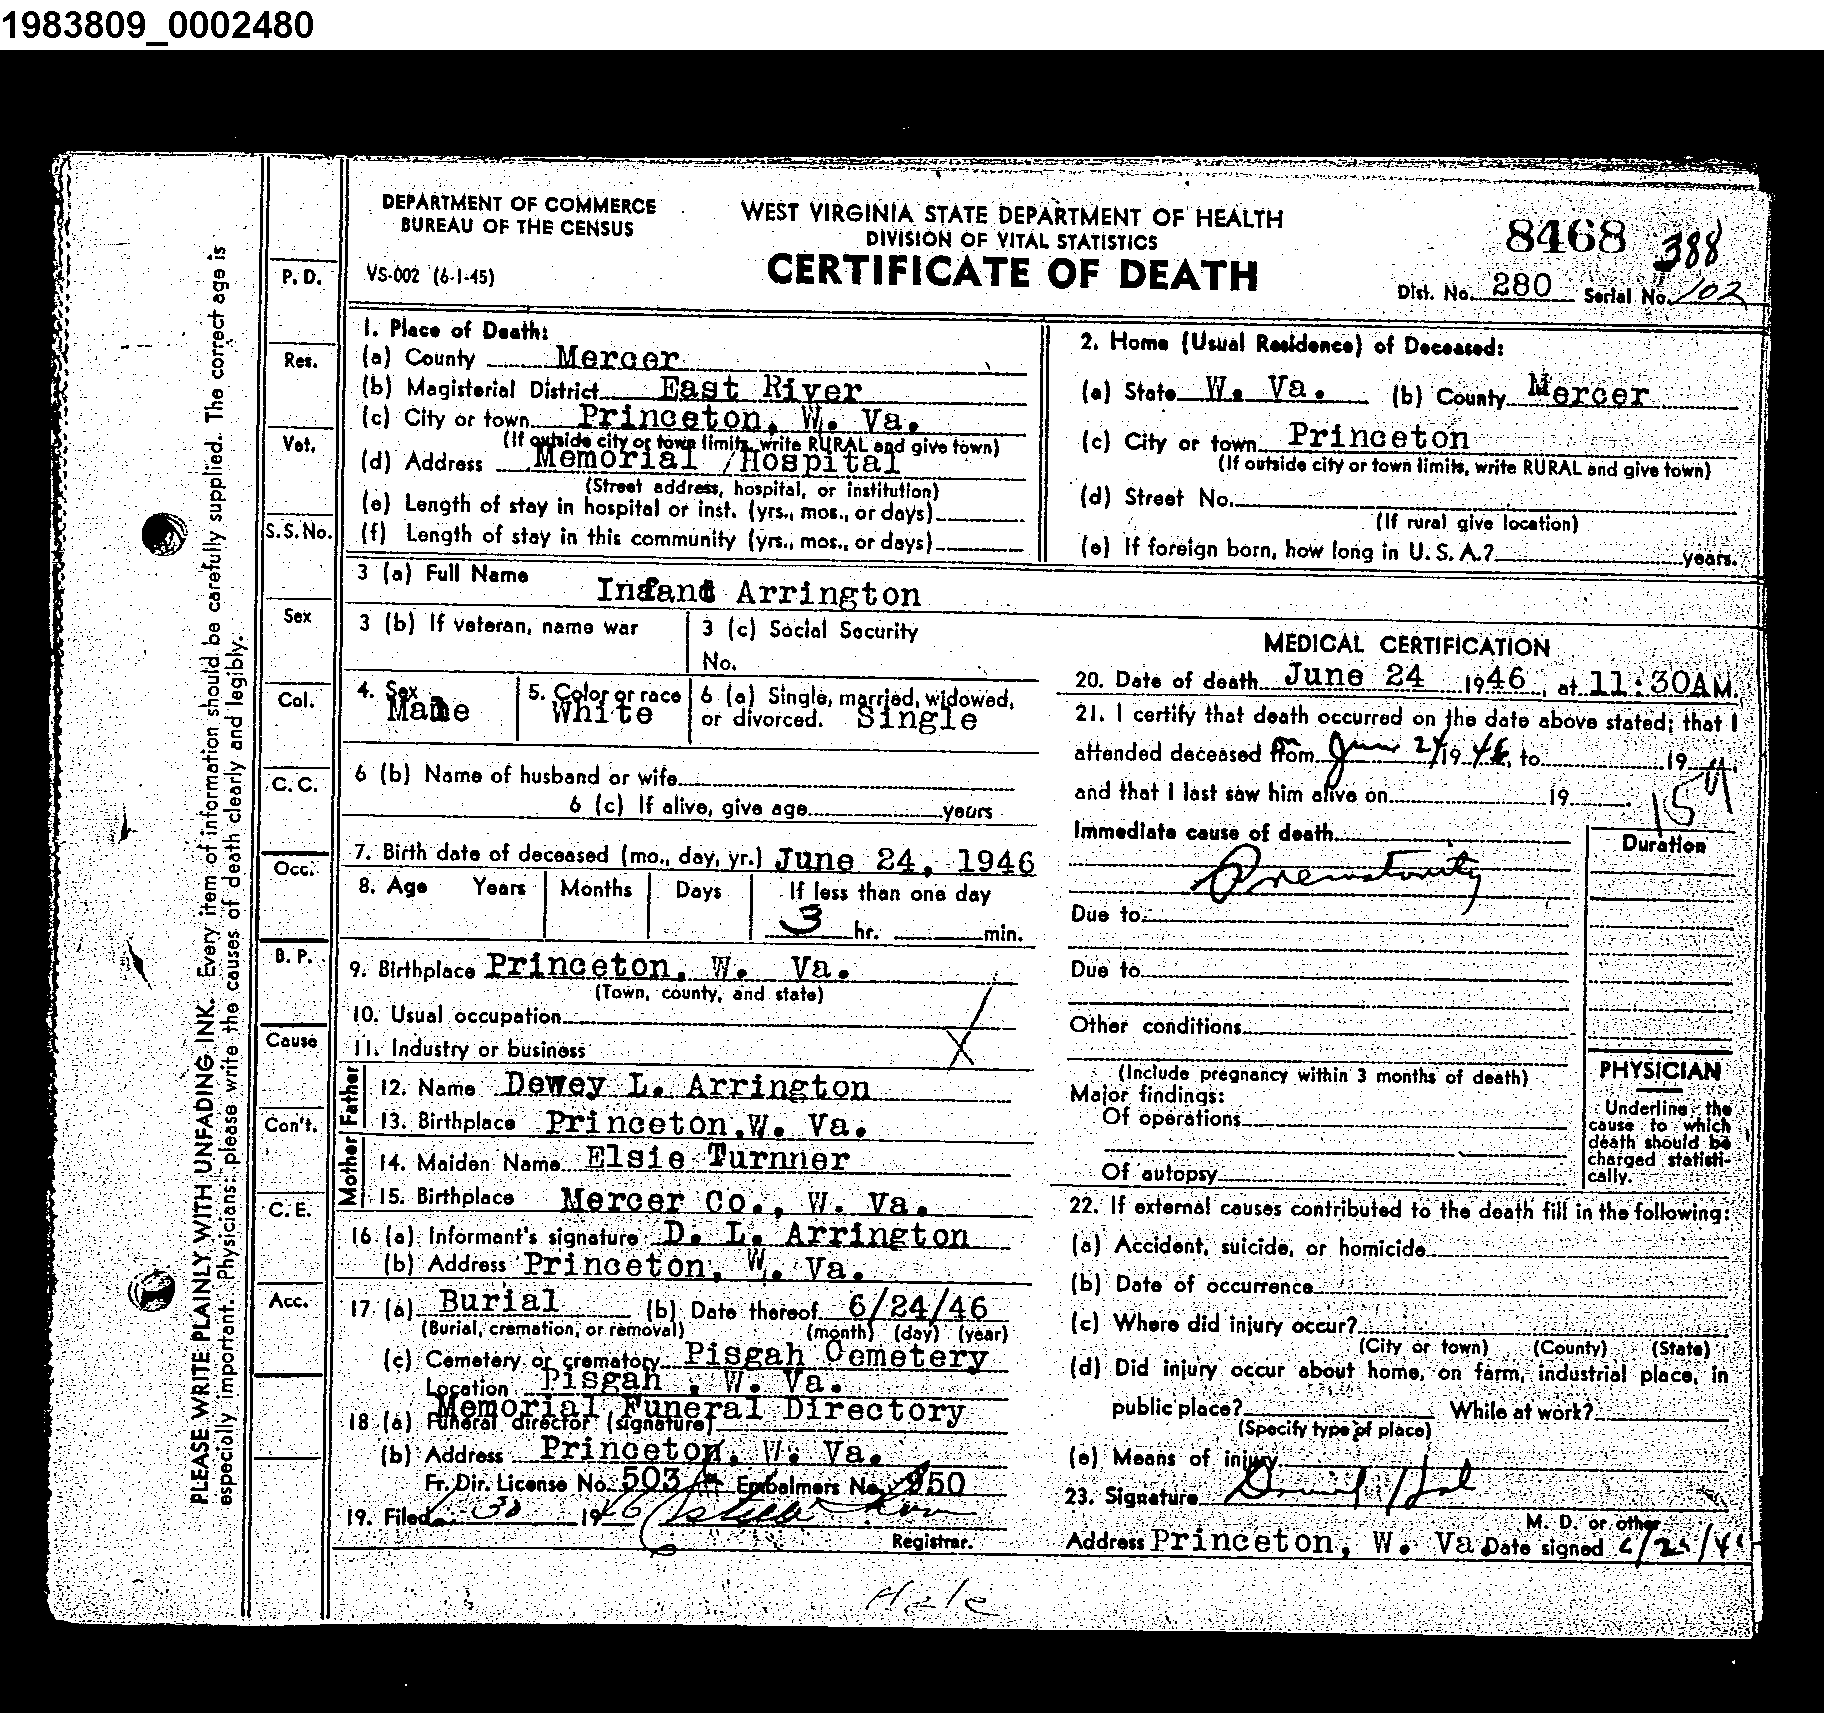 1983809_0002480
DEPARTMENT OF COMMERCE
BUREAU OF THE CENSUS
VS-002 (6-1-45)
WEST VIRGINIA STATE DEPARTMENT OF HEALTH
DIVISION OF VITAL STATISTICS
CERTIFICATE OF DEATH
8468 388
Dist. No. 280 Serial No. 102
1. Place of Death:
(a) County Mercer
(b) Magisterial District East River
(c) City or town Princeton, W. Va.
(If outside city or town limits, write RURAL and give town)
(d) Address Memorial Hospital
(Street address, hospital, or institution)
(e) Length of stay in hospital or inst. (yrs., mos., or days)
(f) Length of stay in this community (yrs., mos., or days)
2. Home (Usual Residence) of Deceased:
(a) State W. Va. (b) County Mercer
(c) City or town Princeton
(If outside city or town limits, write RURAL and give town)
(d) Street No.
(If rural give location)
(e) If foreign born, how long in U. S. A.? years.
3 (a) Full Name Infant Arrington
3 (b) If veteran, name war
3 (c) Social Security
No.
4. Sex Male
5. Color or race White
6 (a) Single, married, widowed,
or divorced. Single
6 (b) Name of husband or wife
6 (c) If alive, give age years
7. Birth date of deceased (mo., day, yr.) June 24, 1946
8. Age Years Months Days If less than one day
3 hr. min.
9. Birthplace Princeton, W. Va.
(Town, county, and state)
10. Usual occupation
11. Industry or business
Father
12. Name Dewey L. Arrington
13. Birthplace Princeton, W. Va.
Mother
14. Maiden Name Elsie Turnner
15. Birthplace Mercer Co., W. Va.
16 (a) Informant's signature D. L. Arrington
(b) Address Princeton, W. Va.
17 (a) Burial (b) Date thereof 6/24/46
(Burial, cremation, or removal) (month) (day) (year)
(c) Cemetery or crematory Pisgah Cemetery
Location Pisgah , W. Va.
Memorial Funeral Directory
18 (a) Funeral director (signature)
(b) Address Princeton, W. Va.
Fr. Dir. License No. 503 Embalmers No. 950
19. Filed 30 1946
Registrar.
MEDICAL CERTIFICATION
20. Date of death June 24 1946, at 11:30AM.
21. I certify that death occurred on the date above stated; that I
attended deceased from June 24 1946, to 19
and that I last saw him alive on 19
159
Immediate cause of death
Prematurity
Duration
Due to
Due to
Other conditions
(Include pregnancy within 3 months of death)
Major findings:
Of operations
Of autopsy
PHYSICIAN
Underline the
cause to which
death should be
charged statisti-
cally.
22. If external causes contributed to the death fill in the following:
(a) Accident, suicide, or homicide
(b) Date of occurrence
(c) Where did injury occur?
(City or town) (County) (State)
(d) Did injury occur about home, on farm, industrial place, in
public place? While at work?
(Specify type of place)
(e) Means of injury
23. Signature Daniel Hale
M. D. or other
Address Princeton, W. Va. Date signed 6/25/4
Hale
P. D.
Res.
Vet.
S. S. No.
Sex
Col.
C. C.
Occ.
B. P.
Cause
Con't.
C. E.
Acc.
PLEASE WRITE PLAINLY WITH UNFADING INK. Every item of information should be carefully supplied. The correct age is
especially important. Physicians: please write the causes of death clearly and legibly.